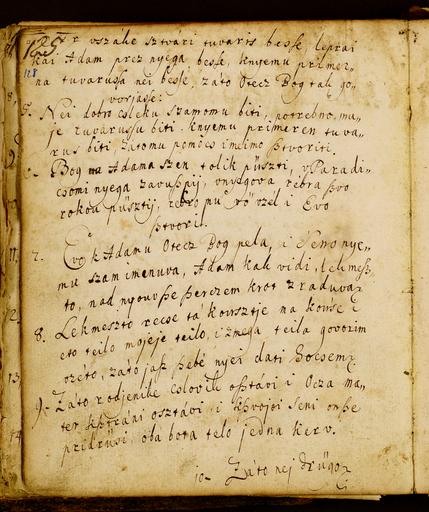 125
128
vszáke sztvári tuvaris besse, leprai
kai Adam prez nyega besse, knyemu primer„
na tuvarussa nei besse, záto Otecz Bog tak go„
vorjásse:
5. Nei dobro csleku szamomu biti, potrebno, ma„
je tuvarussu biti, knyemu primeren tuva„
rus biti, zatomu pomócs imámo stvoriti.
Bog na Adama szen tolik püszti, vParadi„
csomi nyega zavuspij, vnyegova rebra svo
rokoa püsztij, rebro mu vö vzel i Evo
stvoril.
7. Evo k Adamu Otecz Bog pela, i Seno nye„
mu szam imenuva, Adam kak vidi,
to, nad nyouvse szerczem krot zraduva
8. Lekmeszto recse ta kovsztje ma kovse i
eto teilo mojeje teilo, i zmega teila govorim
ozéto, záto jasz sebé nyei dati hocsem
9. Záto rodjenik cslovik ostávi i Ocza ma„
ter kstráni osztávi, i kszvojoi seni onse
pridrüsi, oba bota telo jedna kerv.
10. Záto nej drügo